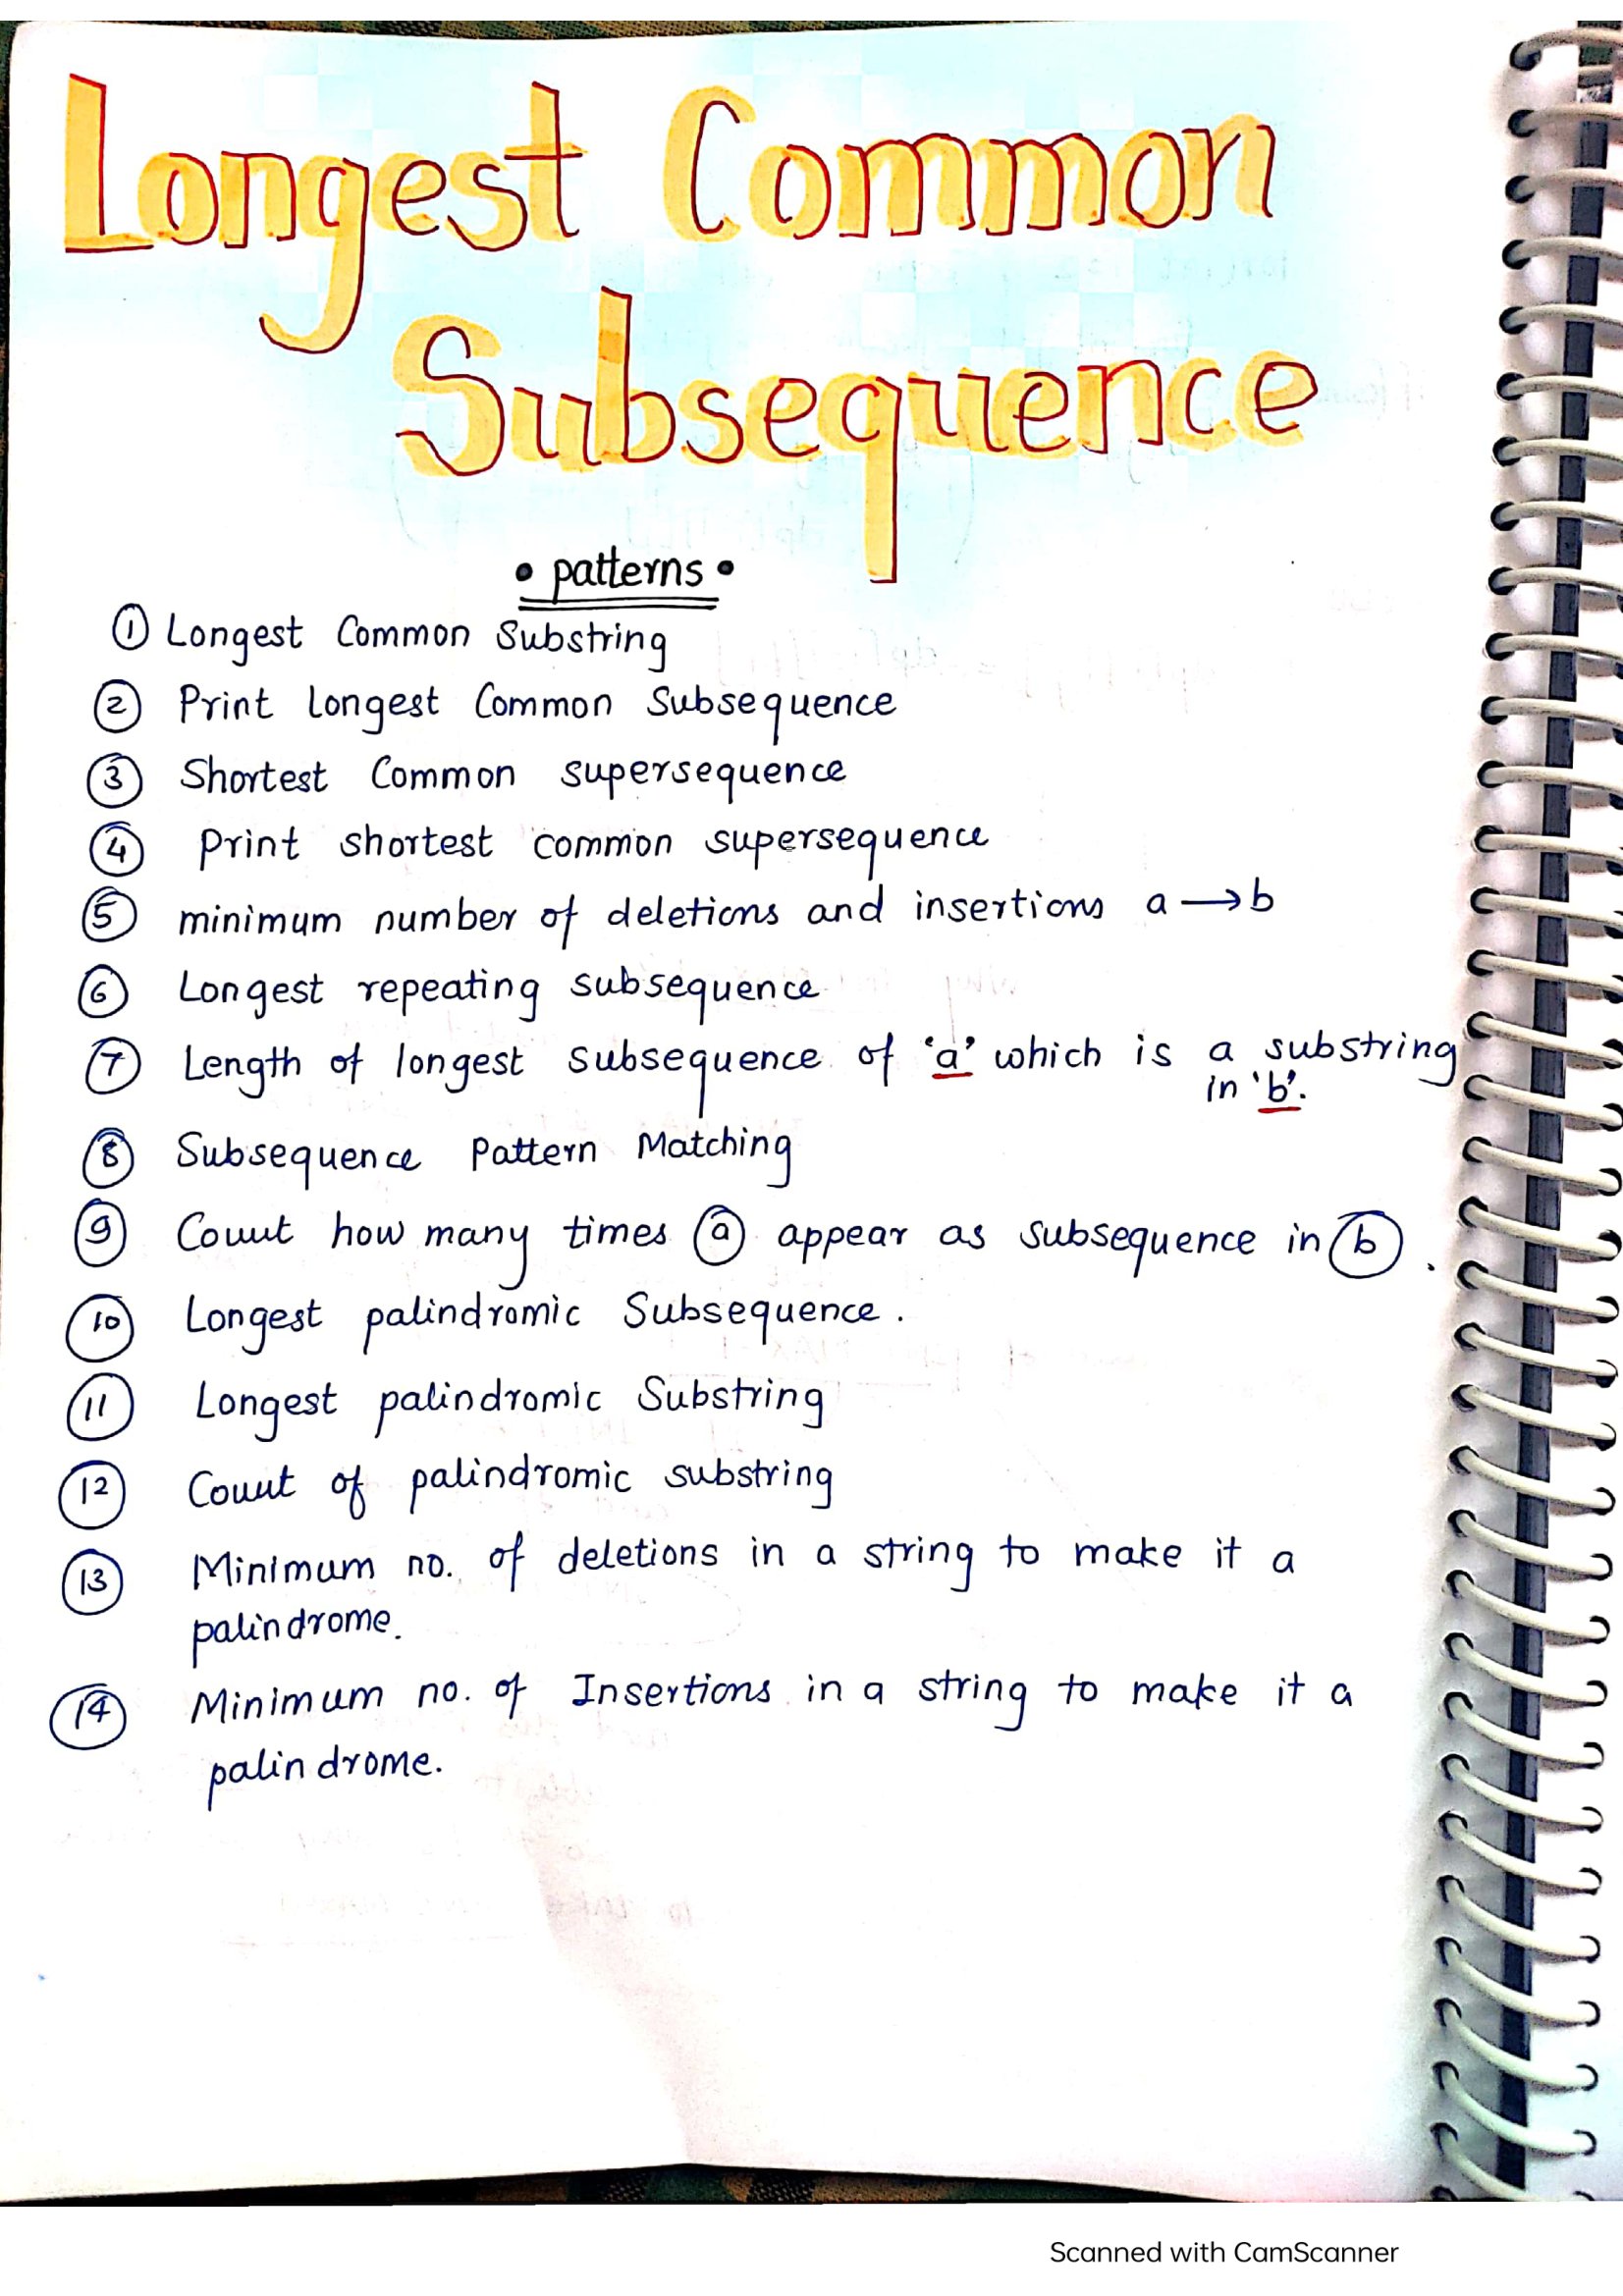 Longest Common
Subsequence
• patterns •
① Longest Common Substring
② Print Longest Common Subsequence
③ Shortest Common supersequence
④ Print shortest common supersequence
⑤ minimum number of deletions and insertions a → b
⑥ Longest repeating subsequence
⑦ Length of longest subsequence of 'a' which is a substring
in 'b'.
⑧ Subsequence Pattern Matching
⑨ Count how many times ⓐ appear as subsequence in ⓑ.
⑩ Longest palindromic Subsequence.
⑪ Longest palindromic Substring
⑫ Count of palindromic substring
⑬ Minimum no. of deletions in a string to make it a
palindrome.
⑭ Minimum no. of Insertions in a string to make it a
palindrome.
Scanned with CamScanner